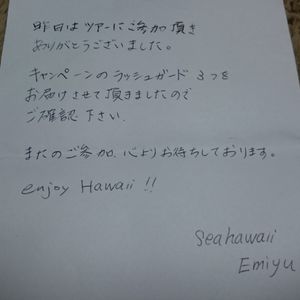 昨日はツアーにご参加頂き
ありがとうございました。
キャンペーンのラッシュガード 3つを
お届けさせて頂きましたので
ご確認下さい。
またのご参加、心よりお待ちしております。
enjoy Hawaii !!
Seahawaii
Emiyu